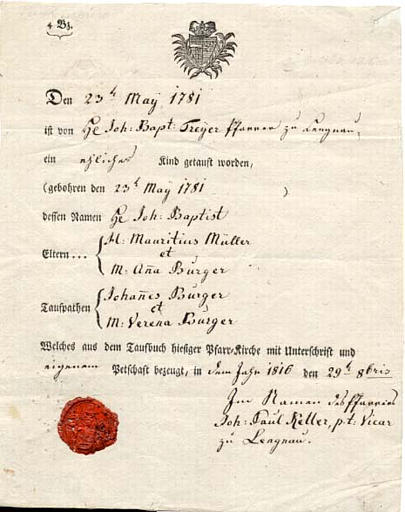 4 Bz.
Den 23t May 1781
ist von He Joh: Bapt: Treÿer Pfarrer zu Lengnau,
ein ehliches Kind getauft worden,
(gebohren den 23t May 1781 )
dessen Namen He Joh: Baptist
Eltern... { M: Mauritius Müller
et
M: Aña Burger
Taufpathen { Johañes Burger
et
M: Verena Burger
Welches aus dem Taufbuch hiesiger Pfarr-Kirche mit Unterschrift und
eigenem Petschaft bezeugt, in dem Jahr 1816 den 29t 8bris
Im Namen des Pfarrers
Joh: Paul Keller, p: t: Vicar
zu Lengnau.